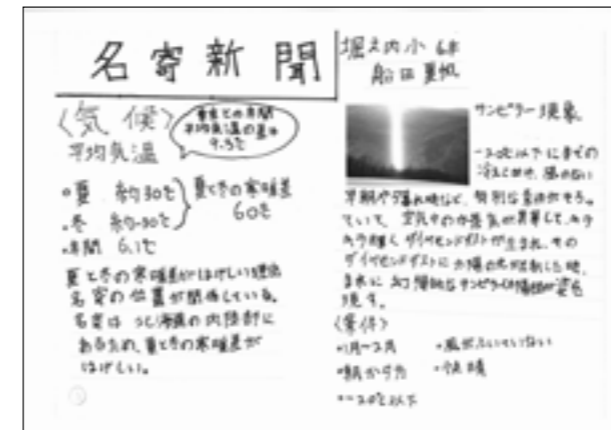 名寄新聞
堀之内小 6年
船田夏帆
〈気候〉
平均気温
東京との年間
平均気温の差は
9.3℃
•夏 約30℃
•冬 約-30℃
夏と冬の寒暖差
60℃
•年間 6.1℃
夏と冬の寒暖差がはげしい理由
名寄の位置が関係している。
名寄は北海道の内陸部に
あるため、夏と冬の寒暖差が
はげしい。
サンピラー現象
-20℃以下にまでの
冷えこみや、風のない
早朝や夕暮れ時など、特別な条件がそろっ
ていて、空気中の水蒸気が昇華して、キラ
キラ輝くダイヤモンドダストが生まれ、その
ダイヤモンドダストに太陽の光が反射した時、
まれに幻想的なサンピラー(太陽柱)が姿を
現す。
〈条件〉
•1月〜2月
•風がふいていない
•朝から夕方
•快晴
•-20℃以下